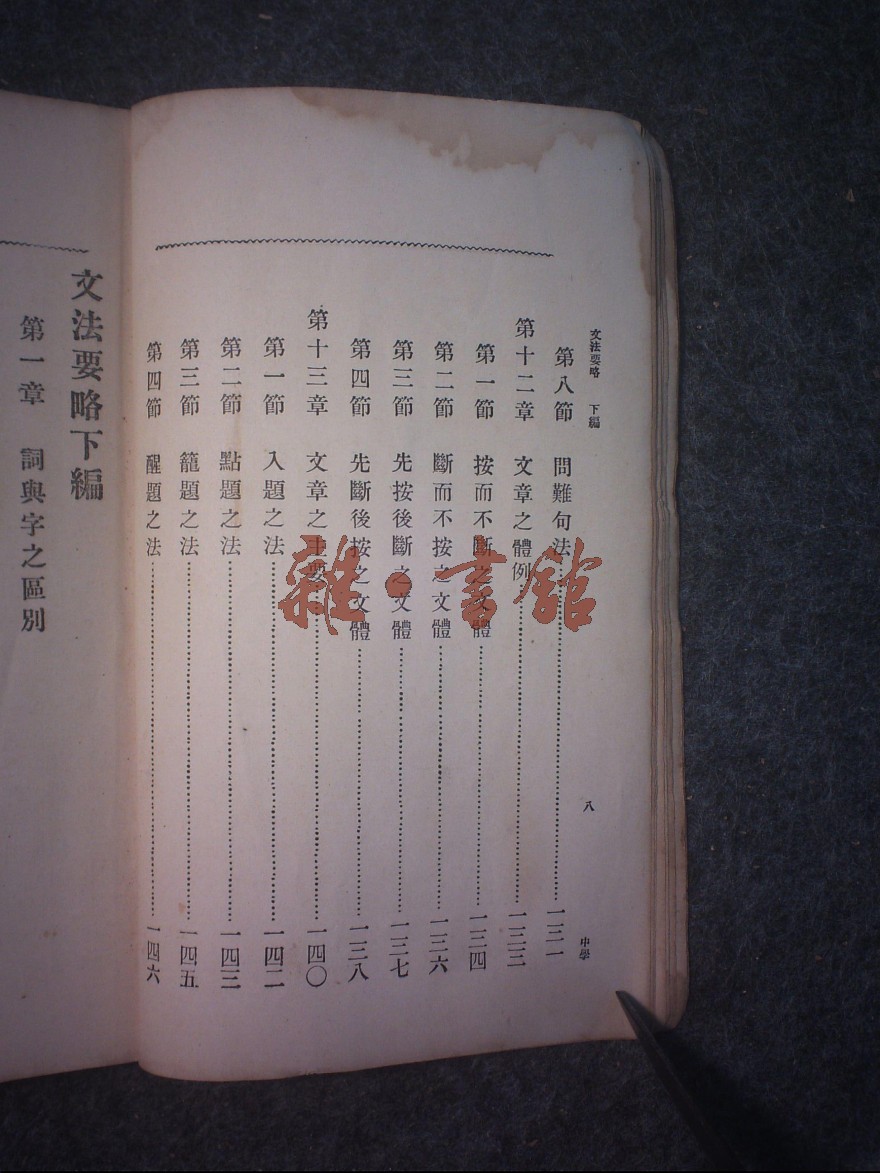 文法要略 下編 八 中學
第八節 問難句法 一三一
第十二章 文章之體例 一三三
第一節 按而不斷之文體 一三四
第二節 斷而不按之文體 一三六
第三節 先按後斷之文體 一三七
第四節 先斷後按之文體 一三八
第十三章 文章之主要 一四〇
第一節 入題之法 一四二
第二節 點題之法 一四三
第三節 籠題之法 一四五
第四節 醒題之法 一四六
文法要略下編
第一章 詞與字之區別
雜·書館